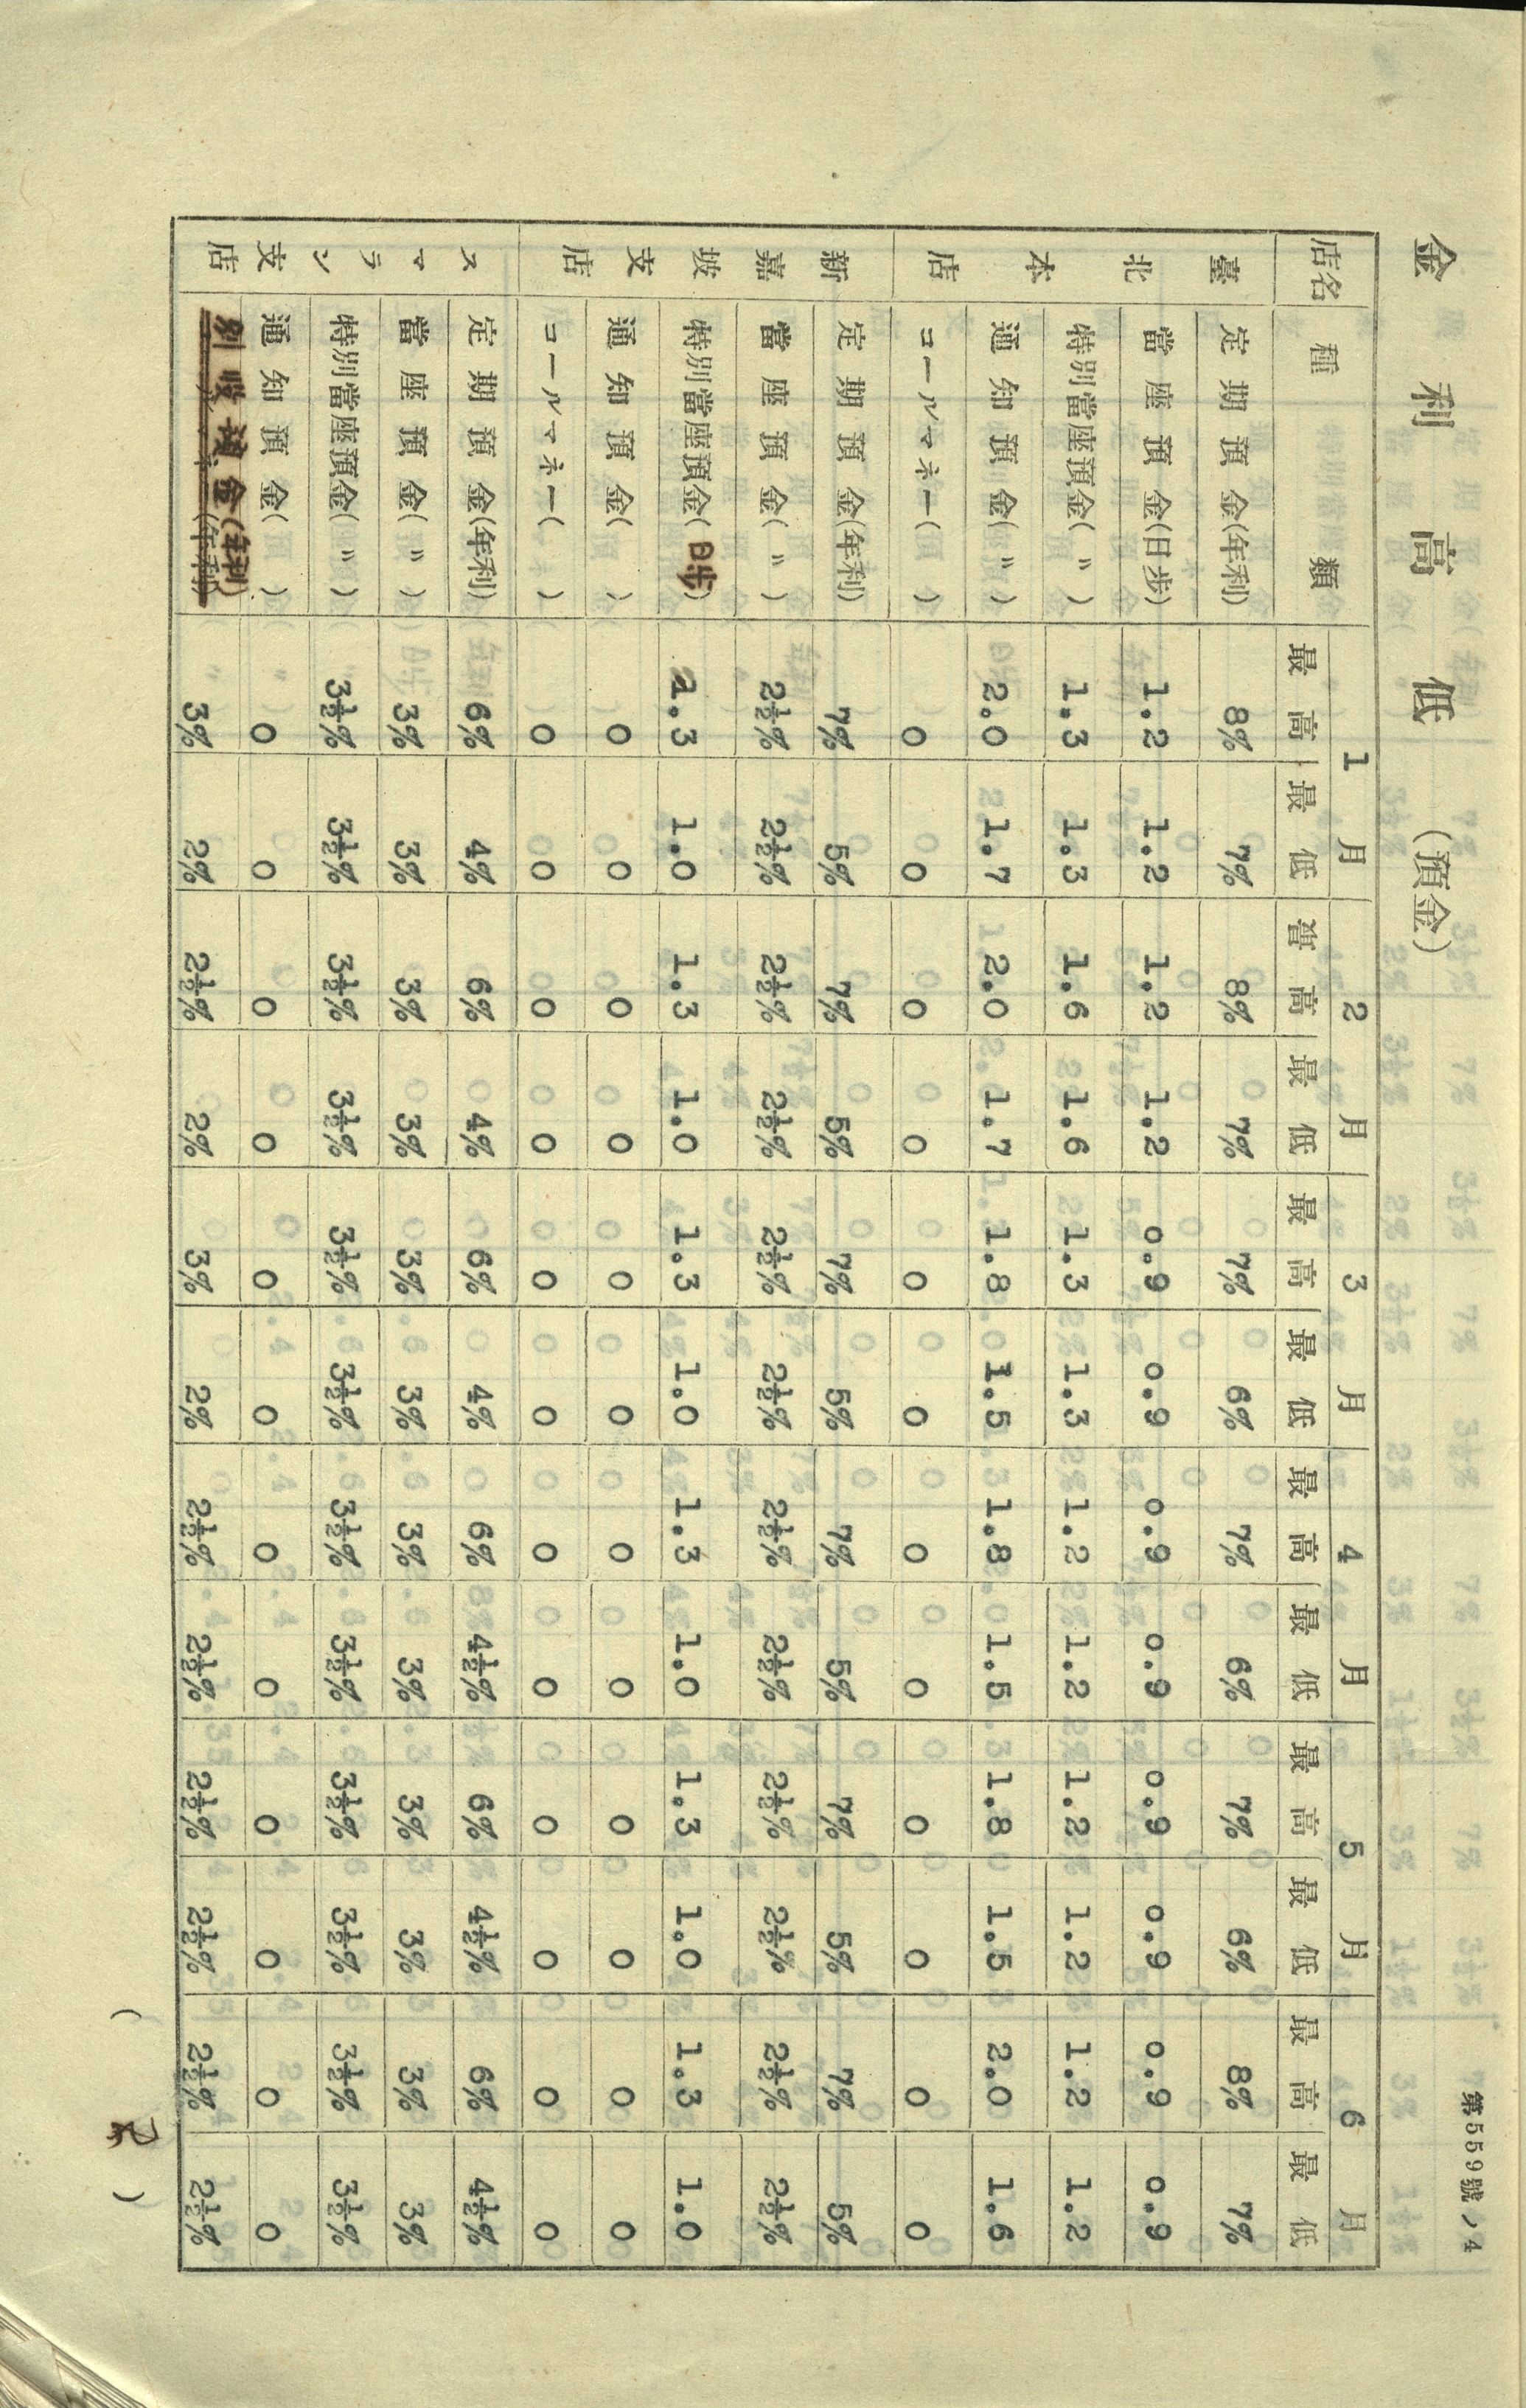 第559號ノ4
金利高低 (預金)
店名 種類 1月 2月 3月 4月 5月 6月
最高 最低 當高 最低 最高 最低 最高 最低 最高 最低 最高 最低
臺北本店
定期預金(年利) 8% 7% 8% 7% 7% 6% 7% 6% 7% 6% 8% 7%
當座預金(日步) 1.2 1.2 1.2 1.2 0.9 0.9 0.9 0.9 0.9 0.9 0.9 0.9
特別當座預金(〃) 1.3 1.3 1.6 1.6 1.3 1.3 1.2 1.2 1.2 1.2 1.2 1.2
通知預金(〃) 2.0 1.7 2.0 1.7 1.8 1.5 1.8 1.5 1.8 1.5 2.0 1.6
コールマネー( ) 0 0 0 0 0 0 0 0 0 0 0 0
新嘉坡支店
定期預金(年利) 7% 5% 7% 5% 7% 5% 7% 5% 7% 5% 7% 5%
當座預金(〃) 2½% 2½% 2½% 2½% 2½% 2½% 2½% 2½% 2½% 2½% 2½% 2½%
特別當座預金(日步) 1.3 1.0 1.3 1.0 1.3 1.0 1.3 1.0 1.3 1.0 1.3 1.0
通知預金( ) 0 0 0 0 0 0 0 0 0 0 0 0
コールマネー( ) 0 0 0 0 0 0 0 0 0 0 0 0
スマラン支店
定期預金(年利) 6% 4% 6% 4% 6% 4% 6% 4½% 6% 4½% 6% 4½%
當座預金(〃) 3% 3% 3% 3% 3% 3% 3% 3% 3% 3% 3% 3%
特別當座預金(〃) 3½% 3½% 3½% 3½% 3½% 3½% 3½% 3½% 3½% 3½% 3½% 3½%
通知預金( ) 0 0 0 0 0 0 0 0 0 0 0 0
別段預金(年利) 3% 2% 2½% 2% 3% 2% 2½% 2½% 2½% 2½% 2½% 2½%